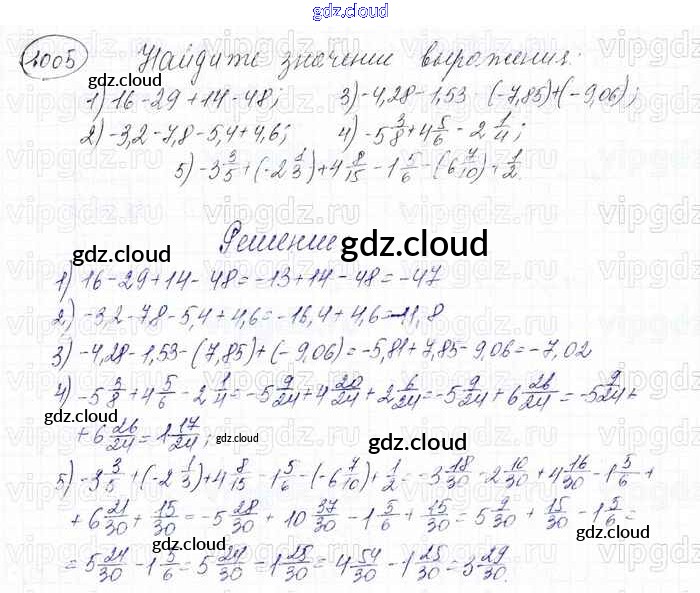 gdz.cloud
1005 Найдите значении выражения:
1) 16 - 29 + 14 - 48; 3) -4,28 - 1,53 - (-7,85) + (-9,06);
2) -3,2 - 7,8 - 5,4 + 4,6; 4) -5 3/8 + 4 5/6 - 2 1/4;
5) -3 3/5 + (-2 1/3) + 4 8/15 - 1 5/6 - (6 7/10) + 1/2.
Решение
1) 16 - 29 + 14 - 48 = -13 + 14 - 48 = -47
2) -3,2 - 7,8 - 5,4 + 4,6 = -16,4 + 4,6 = -11,8
3) -4,28 - 1,53 - (7,85) + (-9,06) = -5,81 + 7,85 - 9,06 = -7,02
4) -5 3/8 + 4 5/6 - 2 1/4 = -5 9/24 + 4 20/24 + 2 6/24 = -5 9/24 + 6 26/24 = -5 9/24 +
+ 6 26/24 = 1 17/24;
5) -3 3/5 + (-2 1/3) + 4 8/15 - 1 5/6 - (-6 7/10) + 1/2 = -3 18/30 - 2 10/30 + 4 16/30 - 1 5/6 +
+ 6 21/30 + 15/30 = -5 28/30 + 10 37/30 - 1 5/6 + 15/30 = 5 9/30 + 15/30 - 1 5/6 =
= 5 24/30 - 1 5/6 = 5 24/30 - 1 25/30 = 4 54/30 - 1 25/30 = 3 29/30.